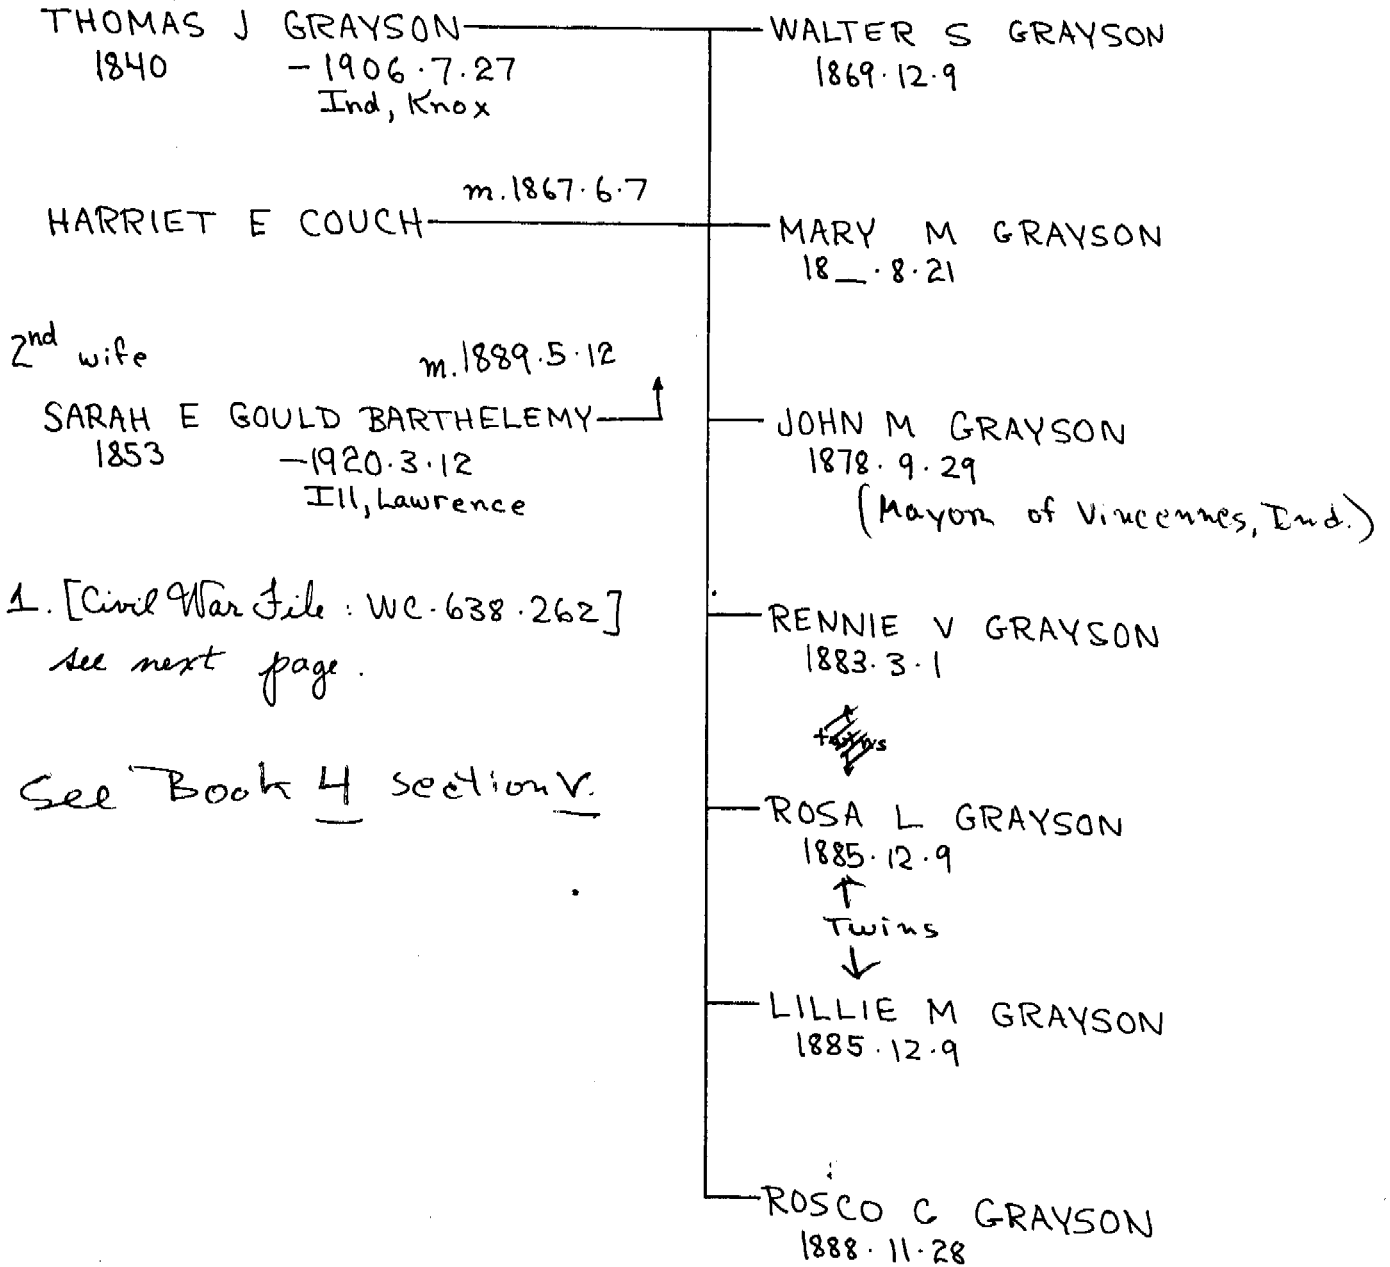 THOMAS J GRAYSON
1840 - 1906.7.27
Ind, Knox
m. 1867.6.7
HARRIET E COUCH
2nd wife
m. 1889.5.12
SARAH E GOULD BARTHELEMY
1853 -1920.3.12
Ill, Lawrence
1. [Civil War File: WC.638.262]
see next page.
See Book 4 section V.
WALTER S GRAYSON
1869.12.9
MARY M GRAYSON
18__.8.21
JOHN M GRAYSON
1878.9.29
(Mayor of Vincennes, Ind.)
RENNIE V GRAYSON
1883.3.1
ROSA L GRAYSON
1885.12.9
Twins
LILLIE M GRAYSON
1885.12.9
ROSCO C GRAYSON
1888.11.28